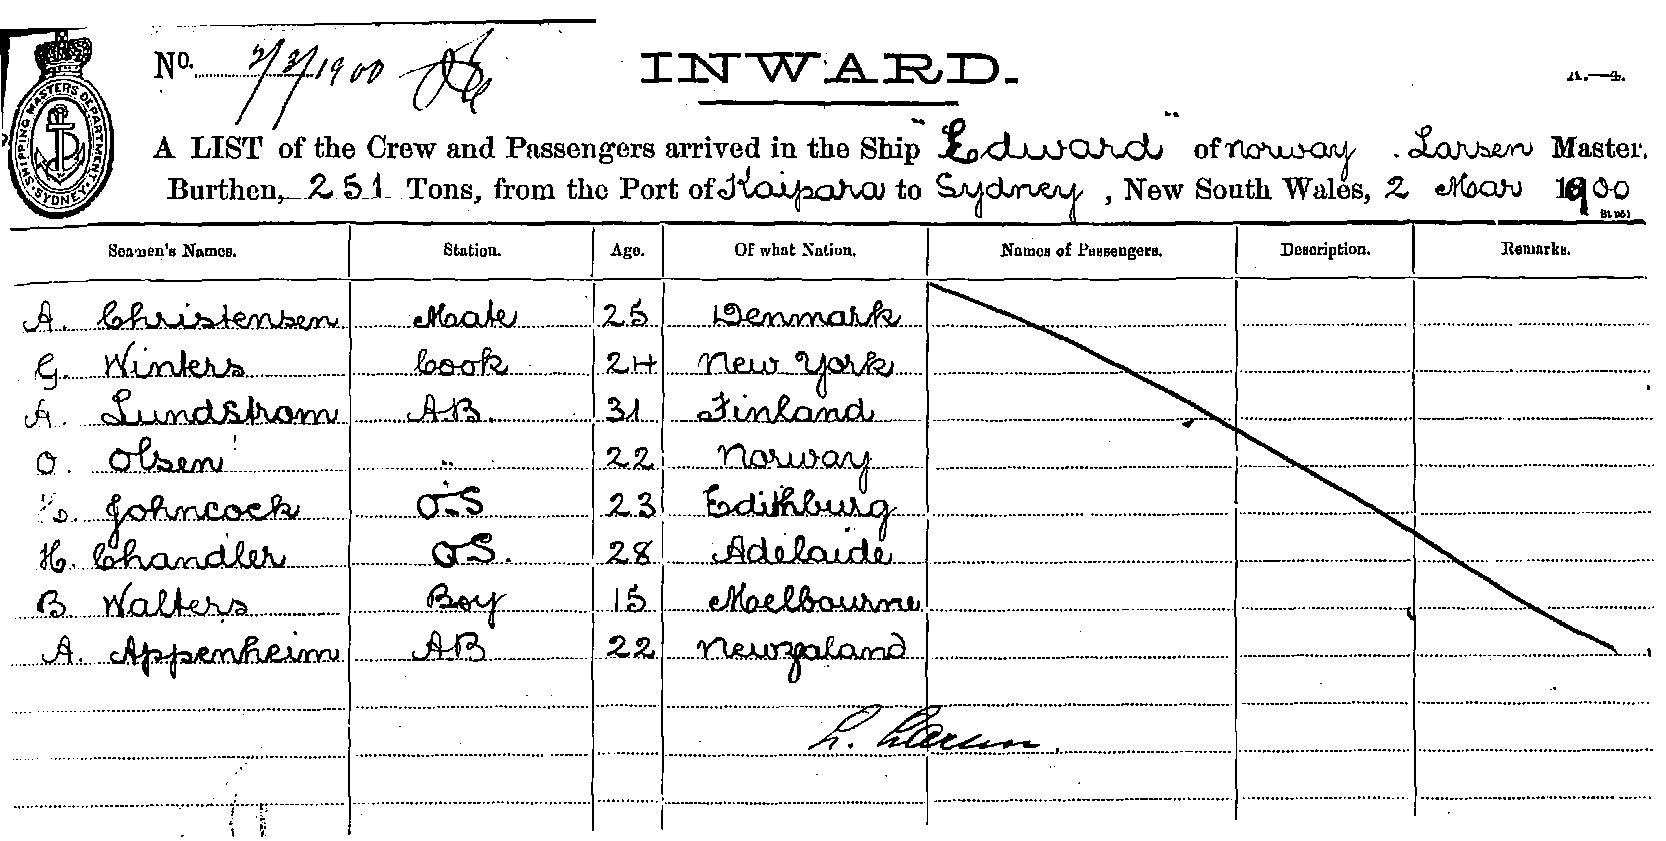 SHIPPING MASTERS DEPARTMENT. SYDNEY
No. 2/3/1900
INWARD.
A.—4.
A LIST of the Crew and Passengers arrived in the Ship "Edward" of Norway. Larsen Master.
Burthen, 251 Tons, from the Port of Kaipara to Sydney, New South Wales, 2 Mar 1900
Seamen's Names. Station. Age. Of what Nation. Names of Passengers. Description. Remarks.
A. Christensen Mate 25 Denmark
G. Winters Cook 24 New York
A. Lundstrom AB. 31 Finland
O. Olsen " 22 Norway
Johncock OS 23 Edithburg
H. Chandler OS. 28 Adelaide
B. Walters Boy 15 Moelbourne
A. Appenheim AB 22 Newzaland
L. Larsen.